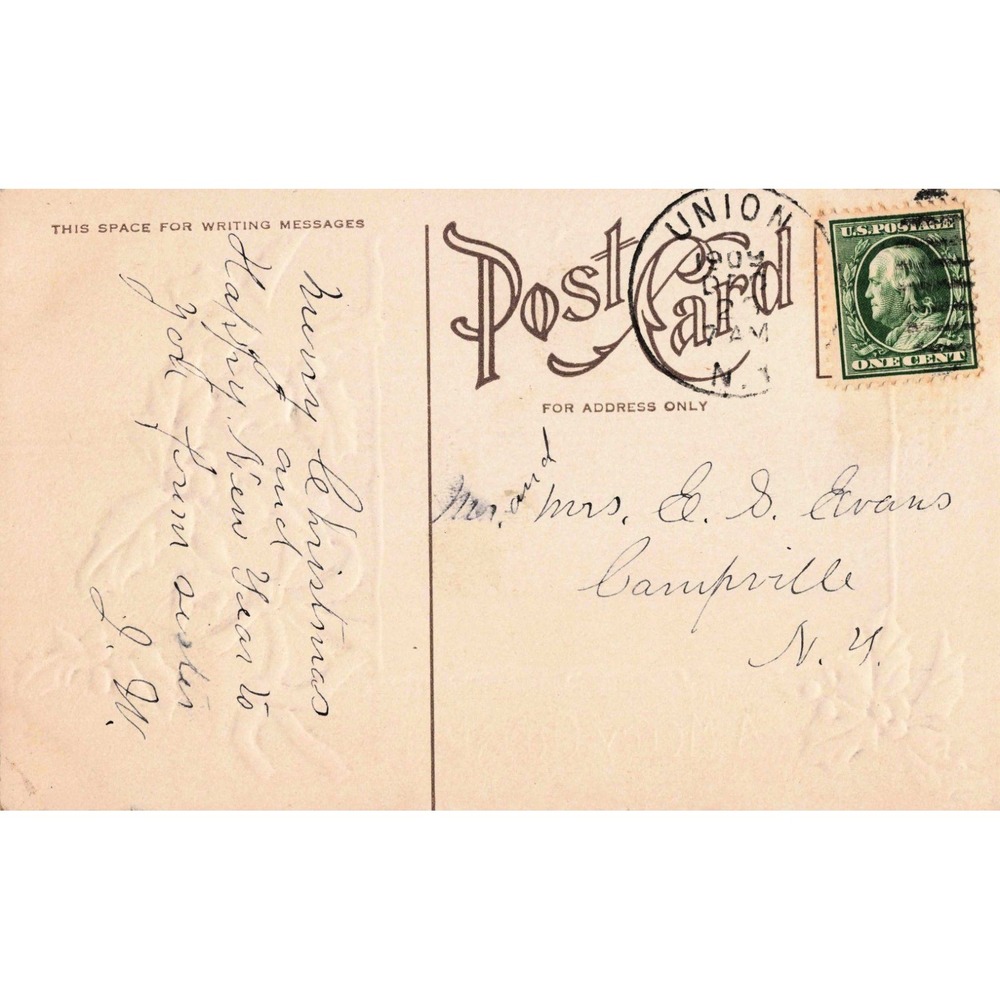 THIS SPACE FOR WRITING MESSAGES
Merry Christmas
and
Happy New Year to
you from sister
J. W.
Post Card
FOR ADDRESS ONLY
UNION
1909
DEC
7 AM
N.Y
U.S. POSTAGE
ONE CENT
Mr. and Mrs. E. S. Evans
Campville
N. Y.
A Merry Christmas